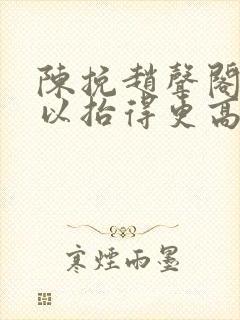 陳挽趙聲閣
以抬得更高
寒煙雨墨